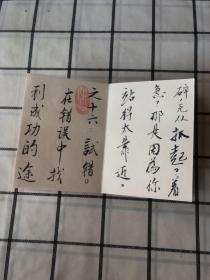 碎，无从
抓起。着
急，那是因為你
站得太靠近。
之十六：試错。
在错误中找
到成功的途